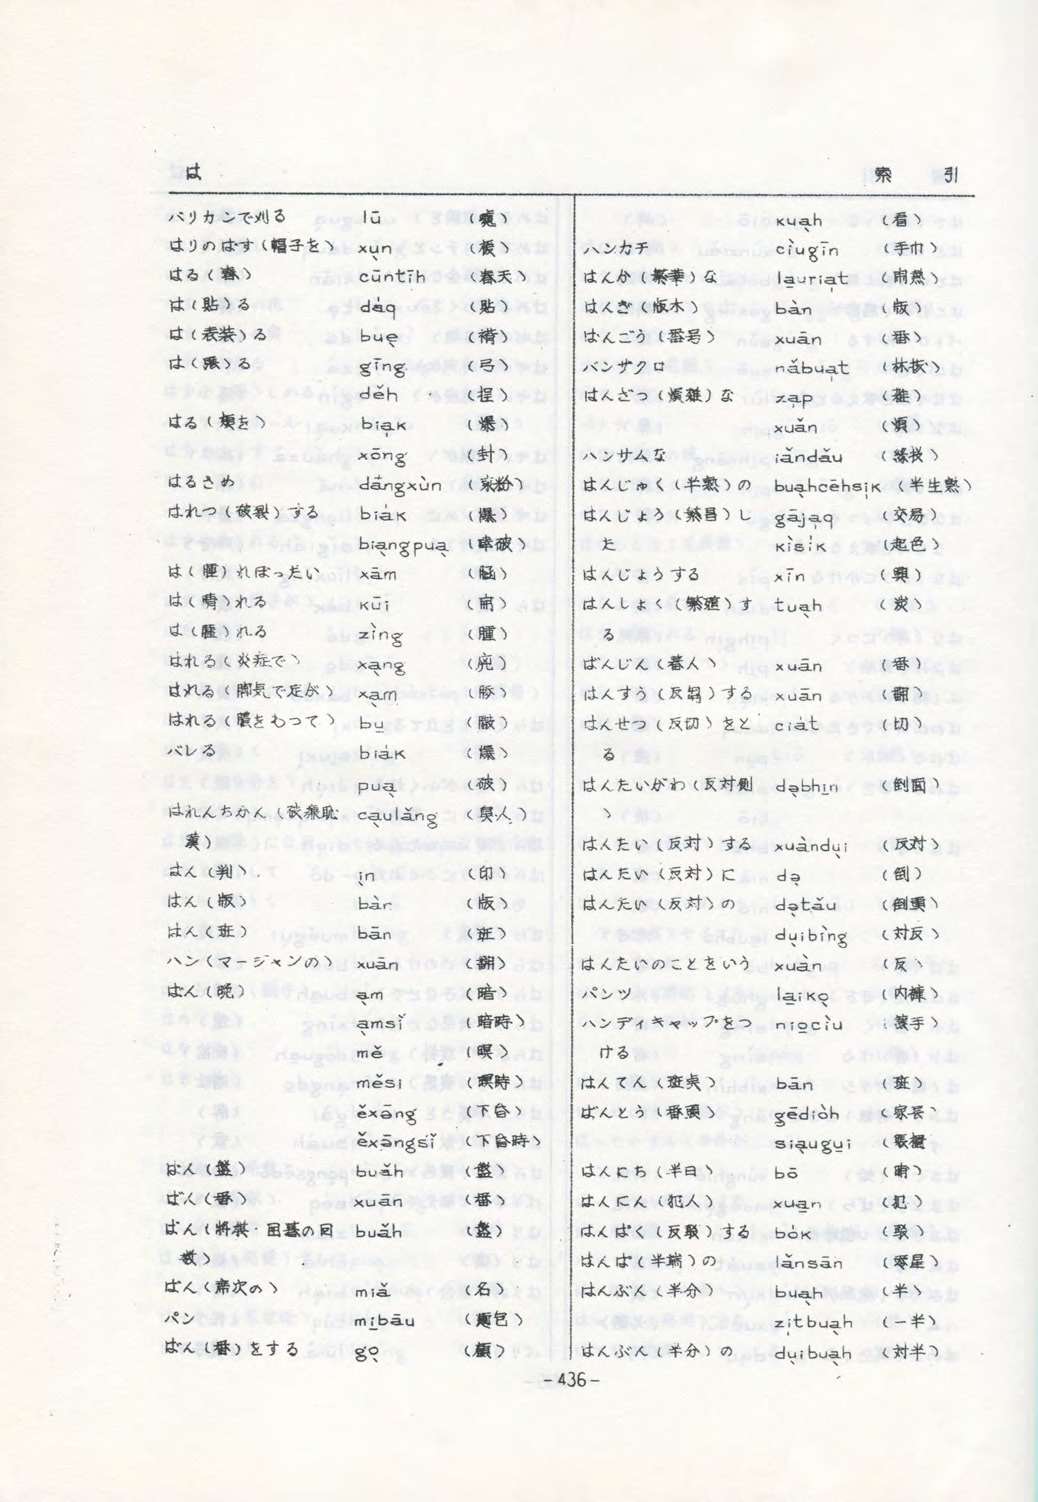 は
索 引
バリカンで刈る lū
はりのばす(帽子を) xụn
はる(春) cūntīh (春天)
は(貼)る dáq (貼)
は(表装)る buẹ
は(張)る gīng (弓)
děh (捏)
はる(頬を) biạk (爆)
xōng (封)
はるさめ dāngxùn
はれつ(破裂)する biák (爆)
biạngpuạ
は(腫)れぼったい xām
は(晴)れる kūi
は(腫)れる zìng (腫)
はれる(炎症で) xạng
はれる(脚気で足が) xạm
はれる(腹をわって) bu̱
バレる biák (爆)
puạ (破)
はれんちかん(破廉恥 cạulǎng
漢)
はん(判) ịn (印)
はん(版) bàn (版)
はん(班) bān (班)
ハン(マージャンの) xuān (翻)
ばん(晩) ạm (暗)
ạmsǐ (暗時)
mě (暝)
měsi (暝時)
ěxāng (下昏)
ěxāngsǐ (下昏時)
ばん(盤) buǎh (盤)
ばん(番) xuān (番)
ばん(将棋・囲碁の回 buǎh (盤)
数)
ばん(席次の) miǎ (名)
パン mi̱bāu (麺包)
ばん(番)をする gọ (顧)
kuạh (看)
ハンカチ cìugīn (手巾)
はんか(繁華)な la̱uriạt (鬧熱)
はんぎ(版木) bàn (版)
ばんごう(番号) xuān (番)
バンザクロ nǎbuạt (林抜)
はんざつ(煩雑)な zạp (雑)
xuǎn (煩)
ハンサムな iǎndǎu (緣投)
はんじゅく(半熟)の buạhcēhsịk (半生熟)
はんじょう(繁昌)し gājạq (交易)
た kìsík (起色)
はんじょうする xīn (興)
はんしょく(繁殖)す tuạh
る
ばんじん(蕃人) xuān (番)
はんすう(反芻)する xuān (翻)
はんせつ(反切)をと ciát (切)
る
はんたいがわ(反対側 dạbhi̱n (倒面)
)
はんたい(反対)する xuàndụi (反対)
はんたい(反対)に dạ (倒)
はんたい(反対)の dạtǎu (倒頭)
dụibìng (対反)
はんたいのことをいう xuàn (反)
パンツ la̱ikọ (内褲)
ハンディキャップをつ nio̱cìu
ける
はんてん(斑点) bān (斑)
ばんとう(番頭) gēdiòh (家長)
siạugu̱i (賬櫃
はんにち(半日) bō (晡)
はんにん(犯人) xua̱n (犯)
はんばく(反駁)する bók (駁)
はんぱ(半端)の lǎnsān (零星)
はんぶん(半分) buạh (半)
zịtbuạh (一半)
はんぶん(半分)の dụibuạh (対半)
-436-